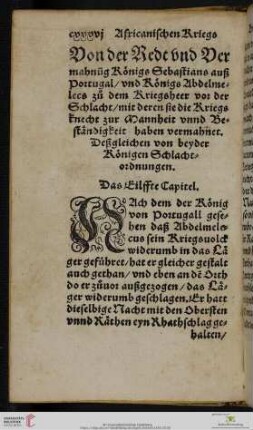 cxxxvj Africanischen Kriegs
Von der Redt vnd Ver
mahnũg Königs Sebastians auß
Portugal / vnd Königs Abdelme-
lecs zů dem Kriegsheer vor der
Schlacht / mit deren sie die Kriegs
knecht zur Mannheit vnnd Be-
ständigkeit haben vermahnet.
Deßgleichen von beyder
Königen Schlacht-
ordnungen.
Das Eilffte Capitel.
NAch dem der König
von Portugall gese-
hen daß Abdelmele-
cus sein Kriegsuolck
widerumb in das Lä
ger geführet / hat er gleicher gestalt
auch gethan / vnd eben an dē Orth
do er zůuor außgezogen / das Lä-
ger widerumb geschlagen. Er hatt
dieselbige Nacht mit den Obersten
vnnd Räthen eyn Rhathschlag ge-
halten /